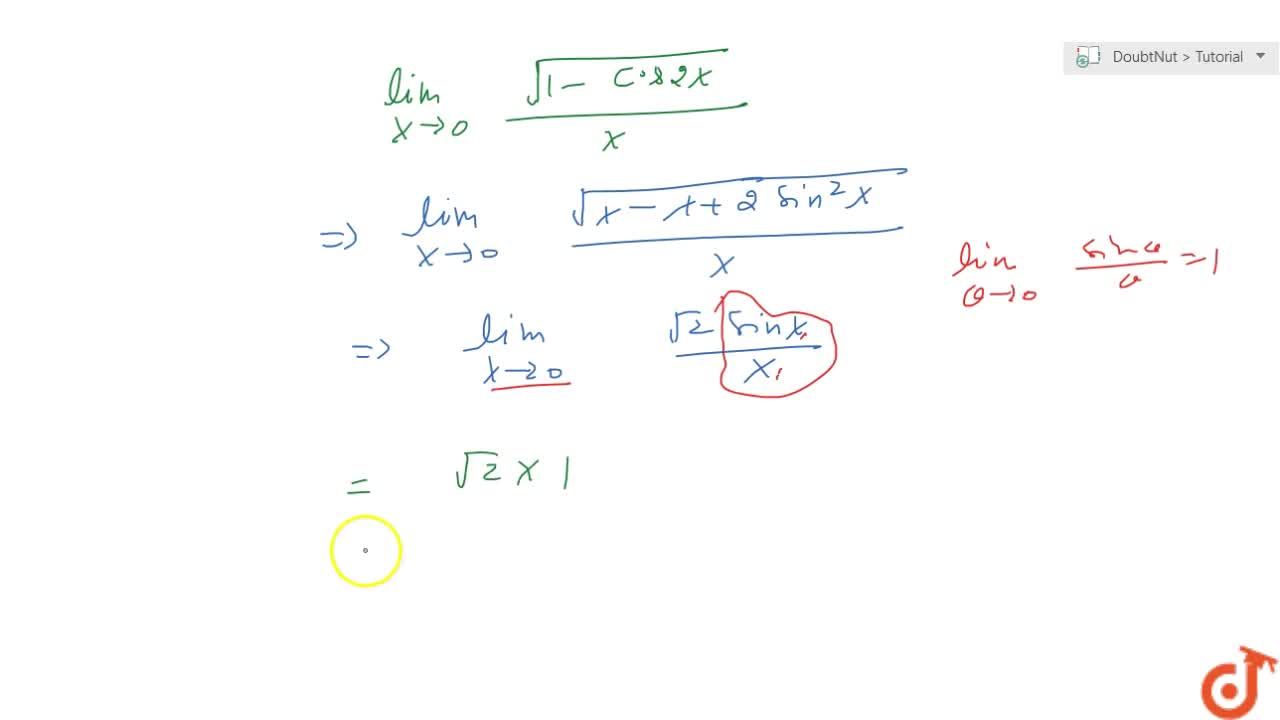 DoubtNut > Tutorial
lim x→0 √(1 - Cos2x) / x
=> lim x→0 √(1 - 1 + 2 sin²x) / x
lim θ→0 sinθ / θ = 1
=> lim x→0 √2 sinx / x
= √2 × 1